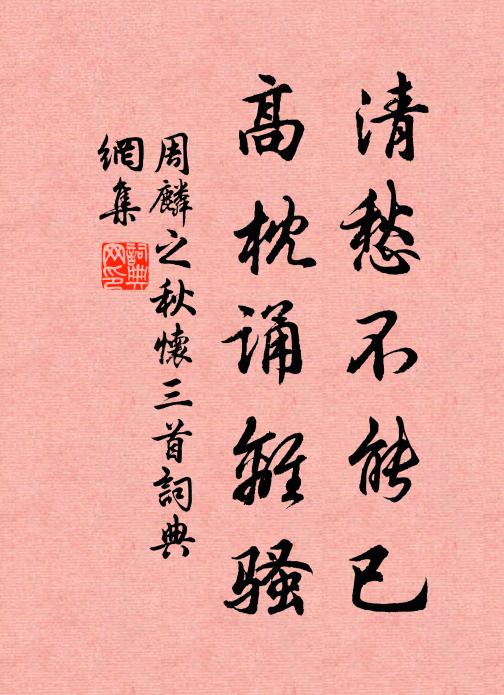 清愁不能已
高枕诵離骚
周麟之秋懷三首詞典
網集
詞典网印